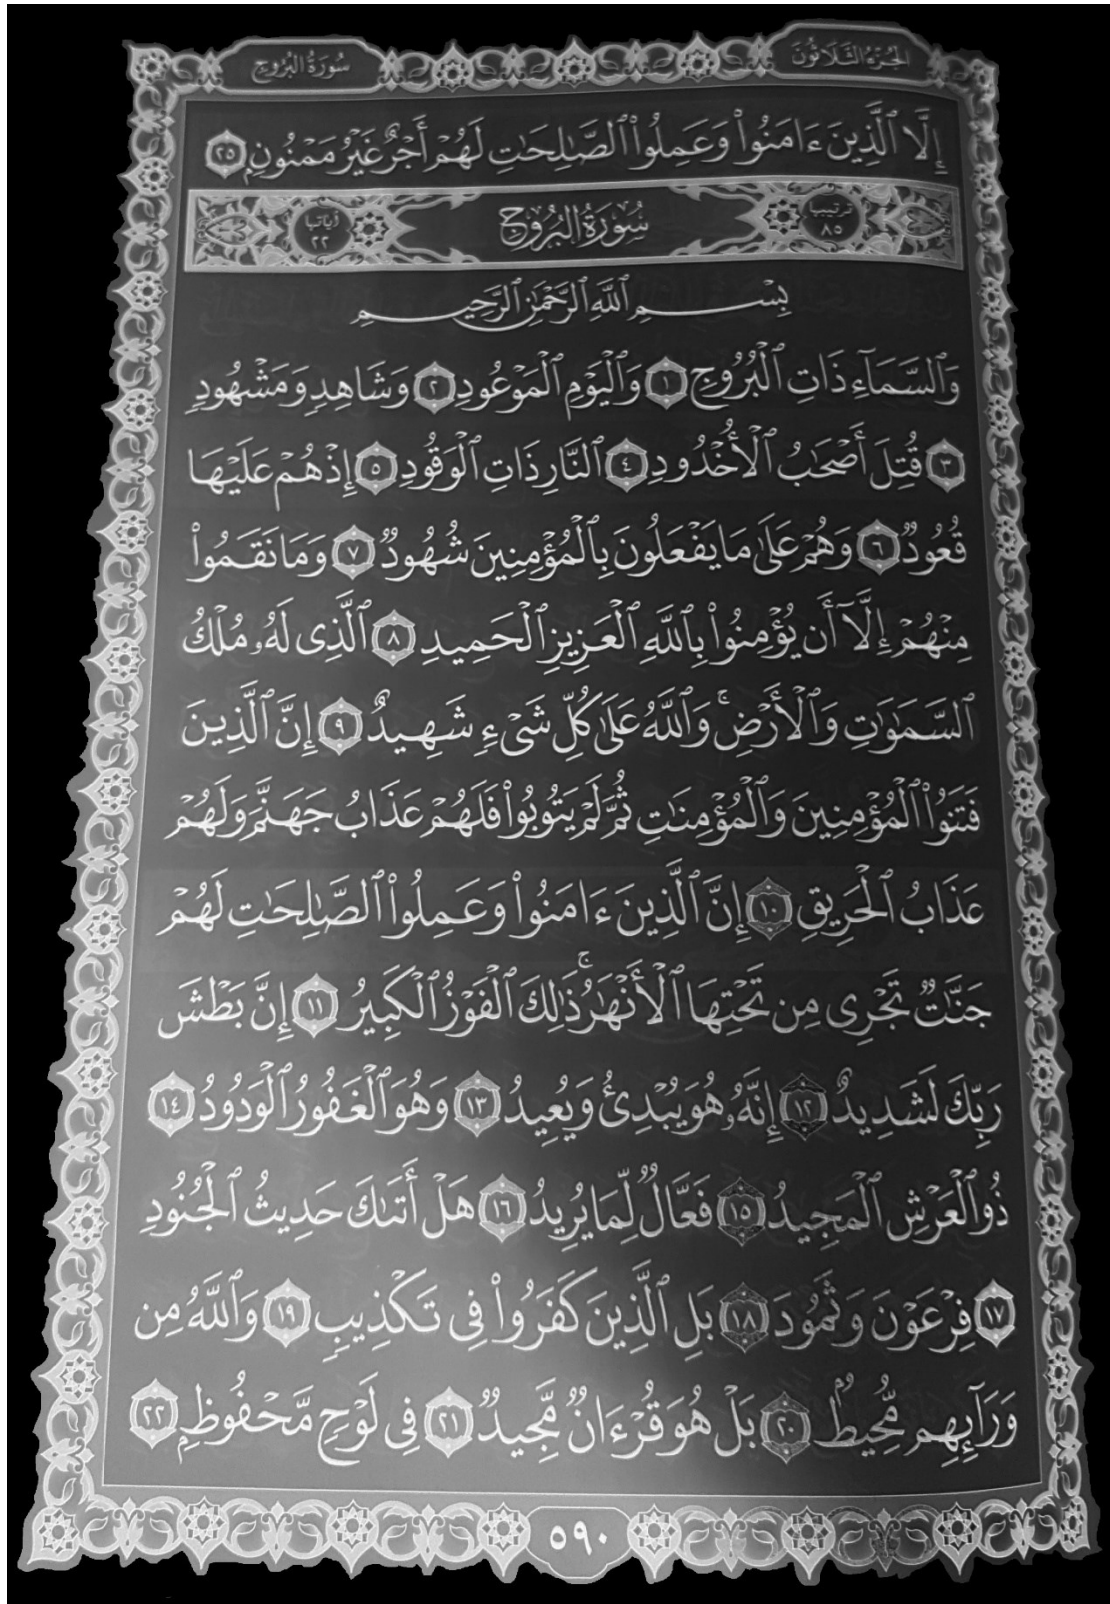 الجُزْءُ الثَّلَاثُونَ سُورَةُ البُرُوجِ
إِلَّا ٱلَّذِينَ ءَامَنُوا۟ وَعَمِلُوا۟ ٱلصَّـٰلِحَـٰتِ لَهُمْ أَجْرٌ غَيْرُ مَمْنُونٍۭ ٢٥
ترتيبها ٨٥ سُورَةُ البُرُوجِ آياتها ٢٢
بِسْمِ ٱللَّهِ ٱلرَّحْمَـٰنِ ٱلرَّحِيمِ
وَٱلسَّمَآءِ ذَاتِ ٱلْبُرُوجِ ١ وَٱلْيَوْمِ ٱلْمَوْعُودِ ٢ وَشَاهِدٍ وَمَشْهُودٍ
٣ قُتِلَ أَصْحَـٰبُ ٱلْأُخْدُودِ ٤ ٱلنَّارِ ذَاتِ ٱلْوَقُودِ ٥ إِذْ هُمْ عَلَيْهَا
قُعُودٌ ٦ وَهُمْ عَلَىٰ مَا يَفْعَلُونَ بِٱلْمُؤْمِنِينَ شُهُودٌ ٧ وَمَا نَقَمُوا۟
مِنْهُمْ إِلَّآ أَن يُؤْمِنُوا۟ بِٱللَّهِ ٱلْعَزِيزِ ٱلْحَمِيدِ ٨ ٱلَّذِى لَهُۥ مُلْكُ
ٱلسَّمَـٰوَٰتِ وَٱلْأَرْضِ ۚ وَٱللَّهُ عَلَىٰ كُلِّ شَىْءٍ شَهِيدٌ ٩ إِنَّ ٱلَّذِينَ
فَتَنُوا۟ ٱلْمُؤْمِنِينَ وَٱلْمُؤْمِنَـٰتِ ثُمَّ لَمْ يَتُوبُوا۟ فَلَهُمْ عَذَابُ جَهَنَّمَ وَلَهُمْ
عَذَابُ ٱلْحَرِيقِ ١٠ إِنَّ ٱلَّذِينَ ءَامَنُوا۟ وَعَمِلُوا۟ ٱلصَّـٰلِحَـٰتِ لَهُمْ
جَنَّـٰتٌ تَجْرِى مِن تَحْتِهَا ٱلْأَنْهَـٰرُ ۚ ذَٰلِكَ ٱلْفَوْزُ ٱلْكَبِيرُ ١١ إِنَّ بَطْشَ
رَبِّكَ لَشَدِيدٌ ١٢ إِنَّهُۥ هُوَ يُبْدِئُ وَيُعِيدُ ١٣ وَهُوَ ٱلْغَفُورُ ٱلْوَدُودُ ١٤
ذُو ٱلْعَرْشِ ٱلْمَجِيدُ ١٥ فَعَّالٌ لِّمَا يُرِيدُ ١٦ هَلْ أَتَىٰكَ حَدِيثُ ٱلْجُنُودِ
١٧ فِرْعَوْنَ وَثَمُودَ ١٨ بَلِ ٱلَّذِينَ كَفَرُوا۟ فِى تَكْذِيبٍ ١٩ وَٱللَّهُ مِن
وَرَآئِهِم مُّحِيطٌۢ ٢٠ بَلْ هُوَ قُرْءَانٌ مَّجِيدٌ ٢١ فِى لَوْحٍ مَّحْفُوظٍۭ ٢٢
٥٩٠